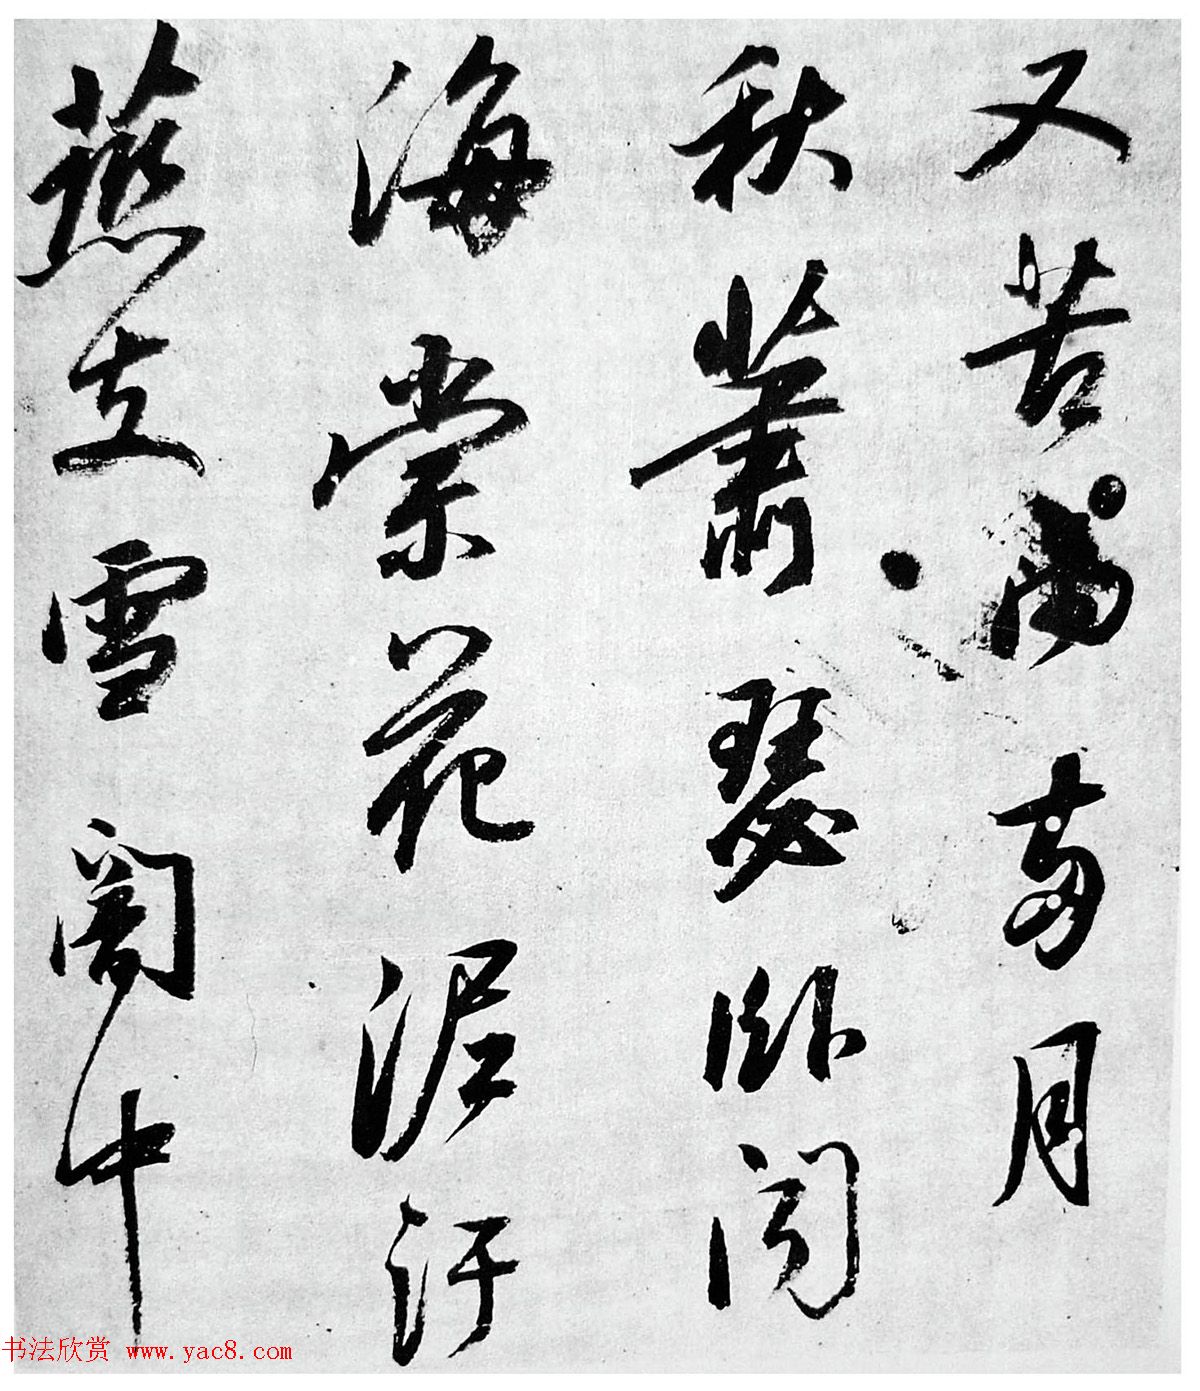 又苦雨两月
秋蕭瑟卧闻
海棠花泥汙
燕支雪闇中
书法欣赏 www.yac8.com